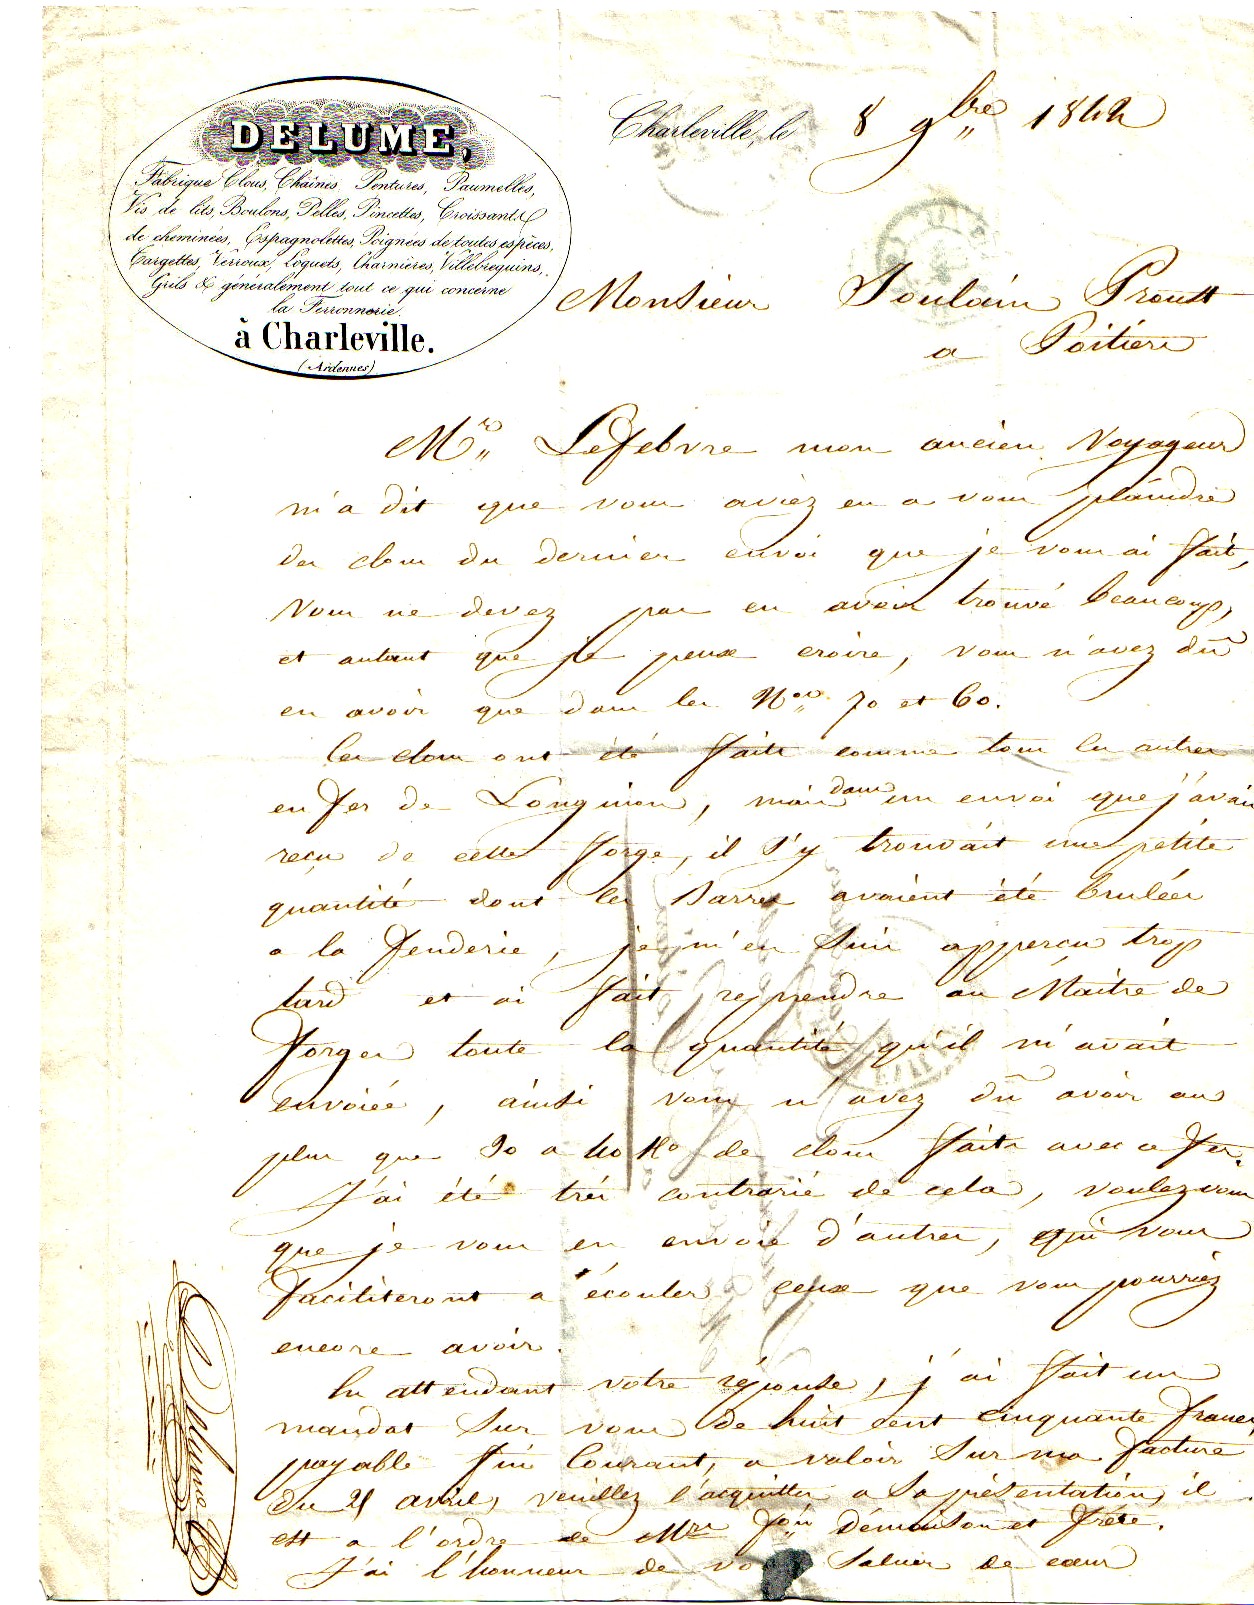 DELUME,
Fabrique Clous, Chaînes, Pentures, Paumelles,
Vis de lits, Boulons, Pelles, Pincettes, Croissants
de cheminées, Espagnolettes, Poignées de toutes espèces,
Targettes, Verroux, Loquets, Charnières, Villebrequins,
Grils & généralement tout ce qui concerne
la Ferronnerie.
à Charleville.
(Ardennes)
Charleville, le 8 9bre 1842
Monsieur Poulain Proust
a Poitiers
Mr Lefebvre mon ancien Voyageur
m'a dit que vous aviez eu a vous plaindre
des clous du dernier envoi que je vous ai fait,
vous ne devez pas en avoir trouvé beaucoup,
et autant que je peux croire, vous n'avez dû
en avoir que dans les Nos 70 et 60.
Ces clous ont été faits comme tous les autres
en fer de Longuion, mais dans un envoi que j'avais
reçu de cette forge, il s'y trouvait une petite
quantité dont les barres avaient été brulées
a la fenderie, je m'en suis apperçu trop
tard et ai fait reprendre au Maitre de
forges toute la quantité qu'il m'avait
envoiée, ainsi vous n'avez dû avoir au
plus que 30 a 40 Ko de clous faits avec ce fer.
J'ai été très contrarié de cela, voulez vous
que je vous en envoie d'autres, qui vous
faciliteront a écouler ceux que vous pourriez
encore avoir.
En attendant votre réponse, j'ai fait un
mandat sur vous de huit cent cinquante francs,
payable fin Courant, a valoir sur ma facture
du 21 avril, veuillez l'acquitter a sa présentation, il
est a l'ordre de Mrs Jon Démaison et frère.
J'ai l'honneur de vous saluer de cœur
Delume